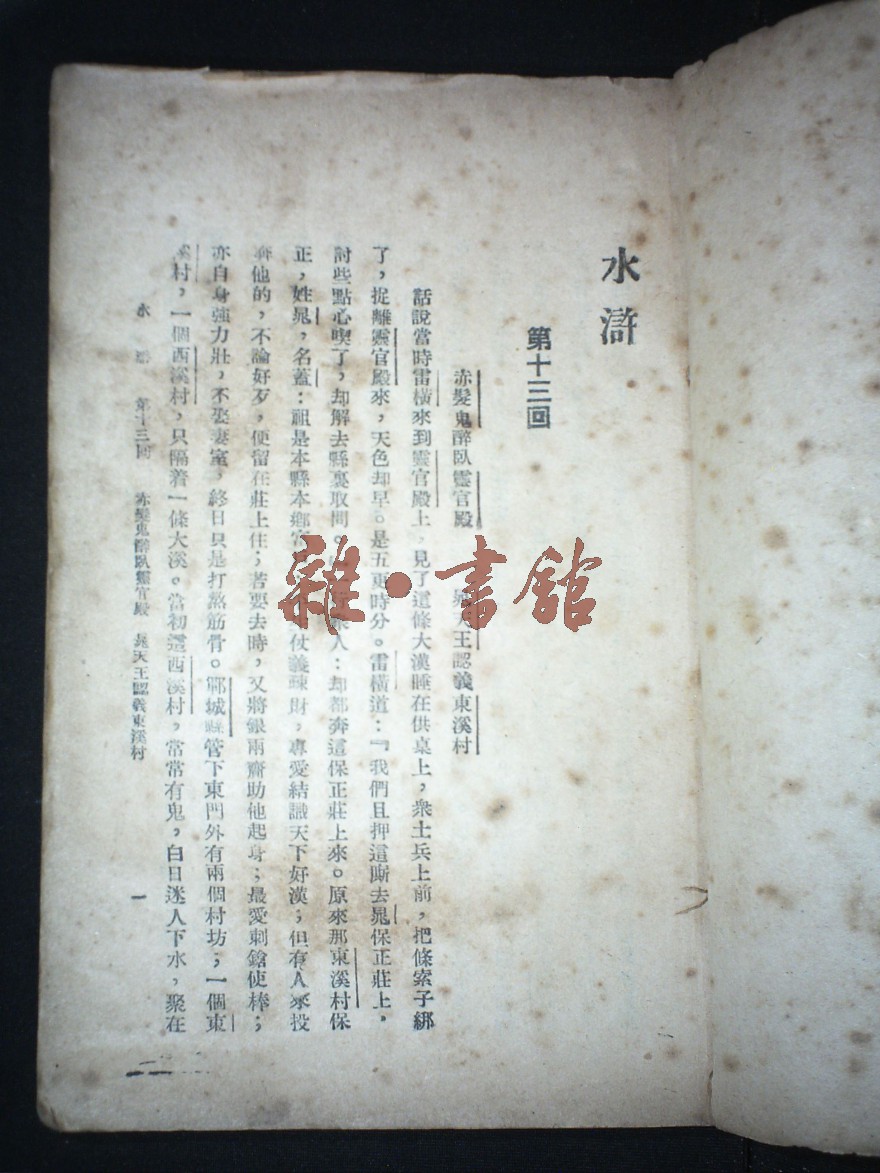 水滸
第十三回
赤髮鬼醉臥靈官殿 晁天王認義東溪村
話說當時雷橫來到靈官殿上，見了這條大漢睡在供桌上，衆士兵上前，把條索子綁
了，捉離靈官殿來，天色却早。是五更時分。雷橫道：『我們且押這廝去晁保正莊上，
討些點心喫了，却解去縣裏取問。 人：却都奔這保正莊上來。原來那東溪村保
正，姓晁，名蓋：祖是本縣本鄉 仗義疎財，專愛結識天下好漢；但有人來投
奔他的，不論好歹，便留在莊上住；若要去時，又將銀兩齎助他起身；最愛刺鎗使棒；
亦自身強力壯，不娶妻室，終日只是打熬筋骨。鄆城縣管下東門外有兩個村坊；一個東
溪村，一個西溪村，只隔着一條大溪。當初這西溪村，常常有鬼，白日迷人下水，聚在
水滸 第十三回 赤髮鬼醉臥靈官殿 晁天王認義東溪村
一
雜·書館